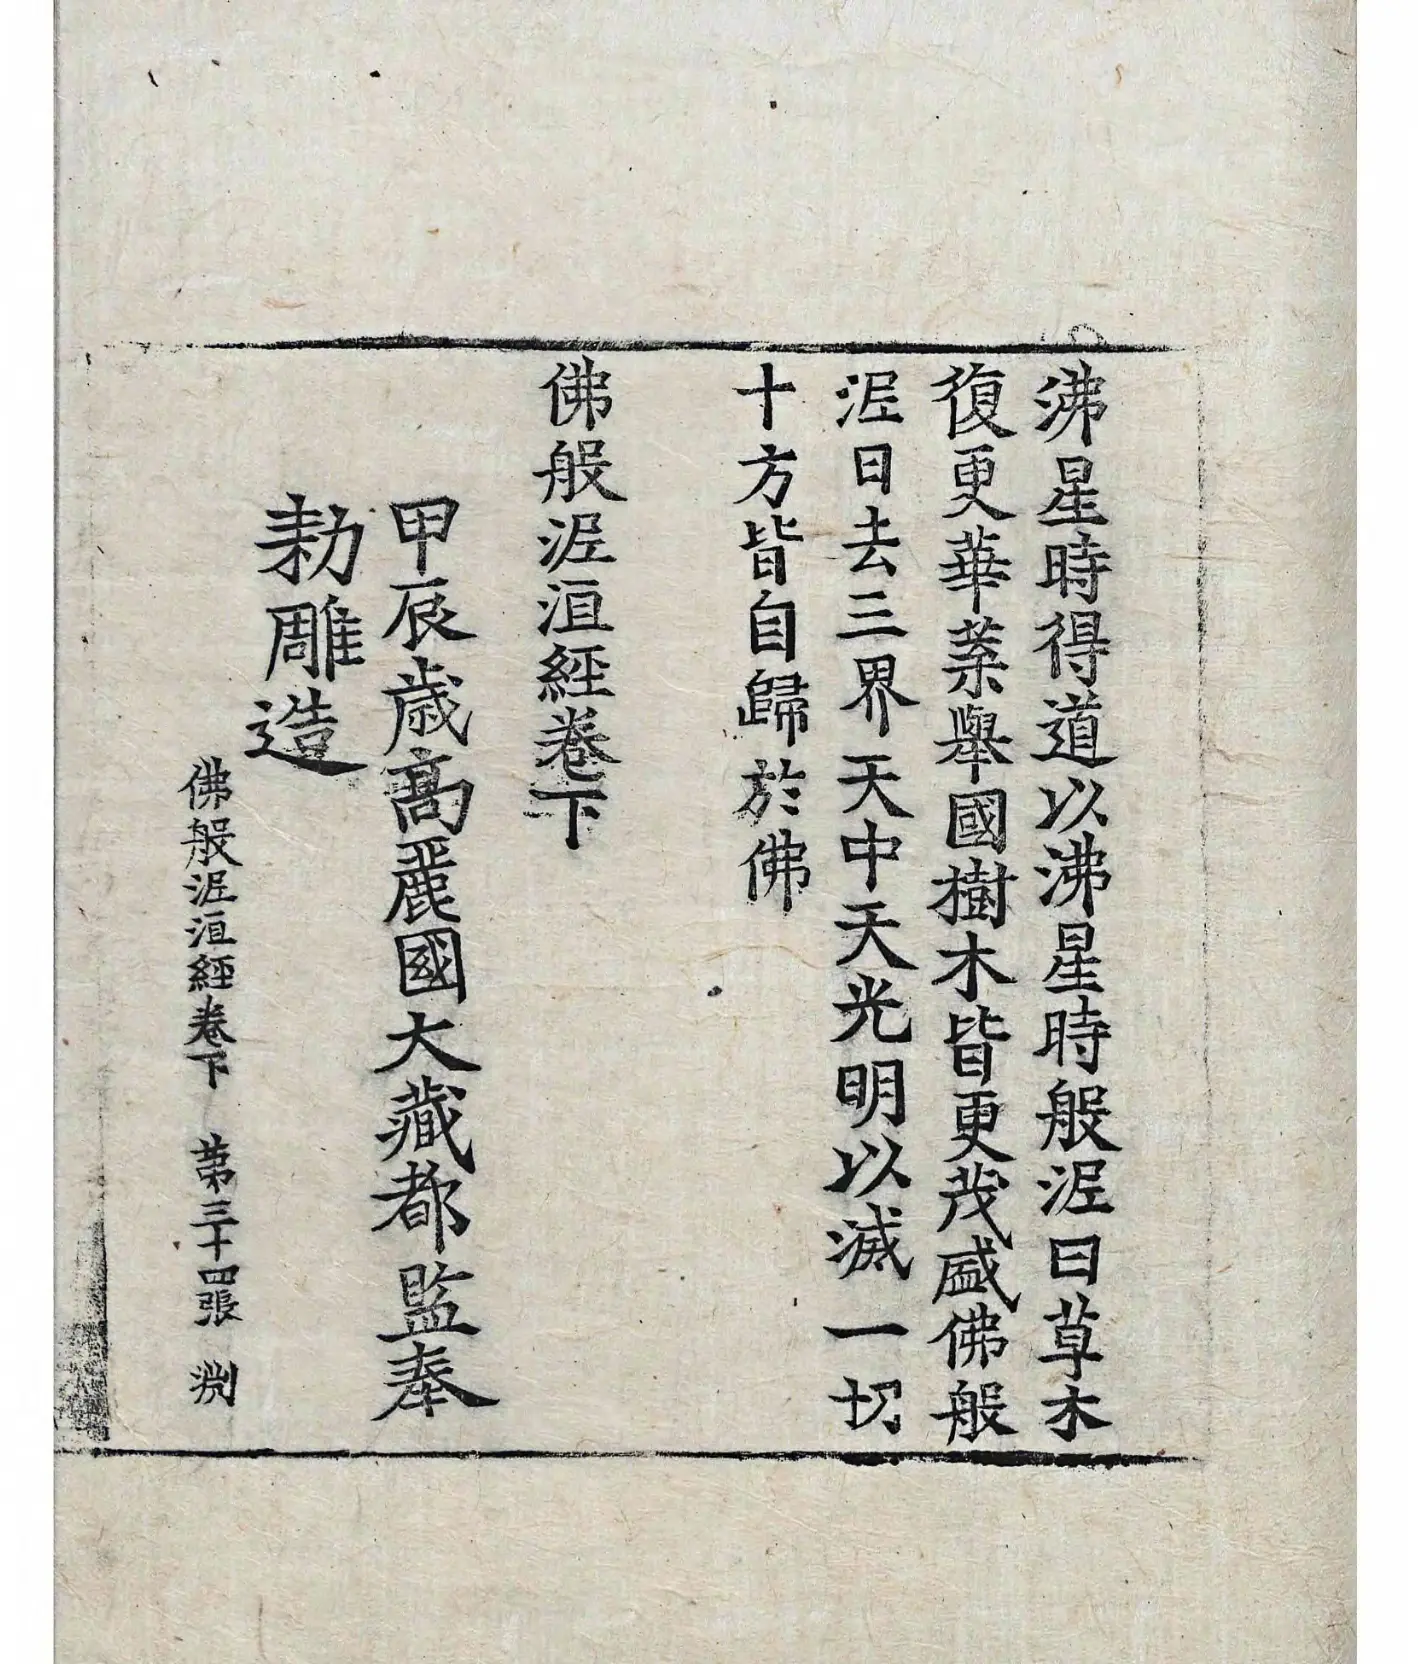 沸星時得道以沸星時般泥曰草木
復更華葉舉國樹木皆更茂盛佛般
泥曰去三界天中天光明以滅一切
十方皆自歸於佛
佛般泥洹經卷下
甲辰歲高麗國大藏都監奉
勅雕造
佛般泥洹經卷下 第三十四張 渕